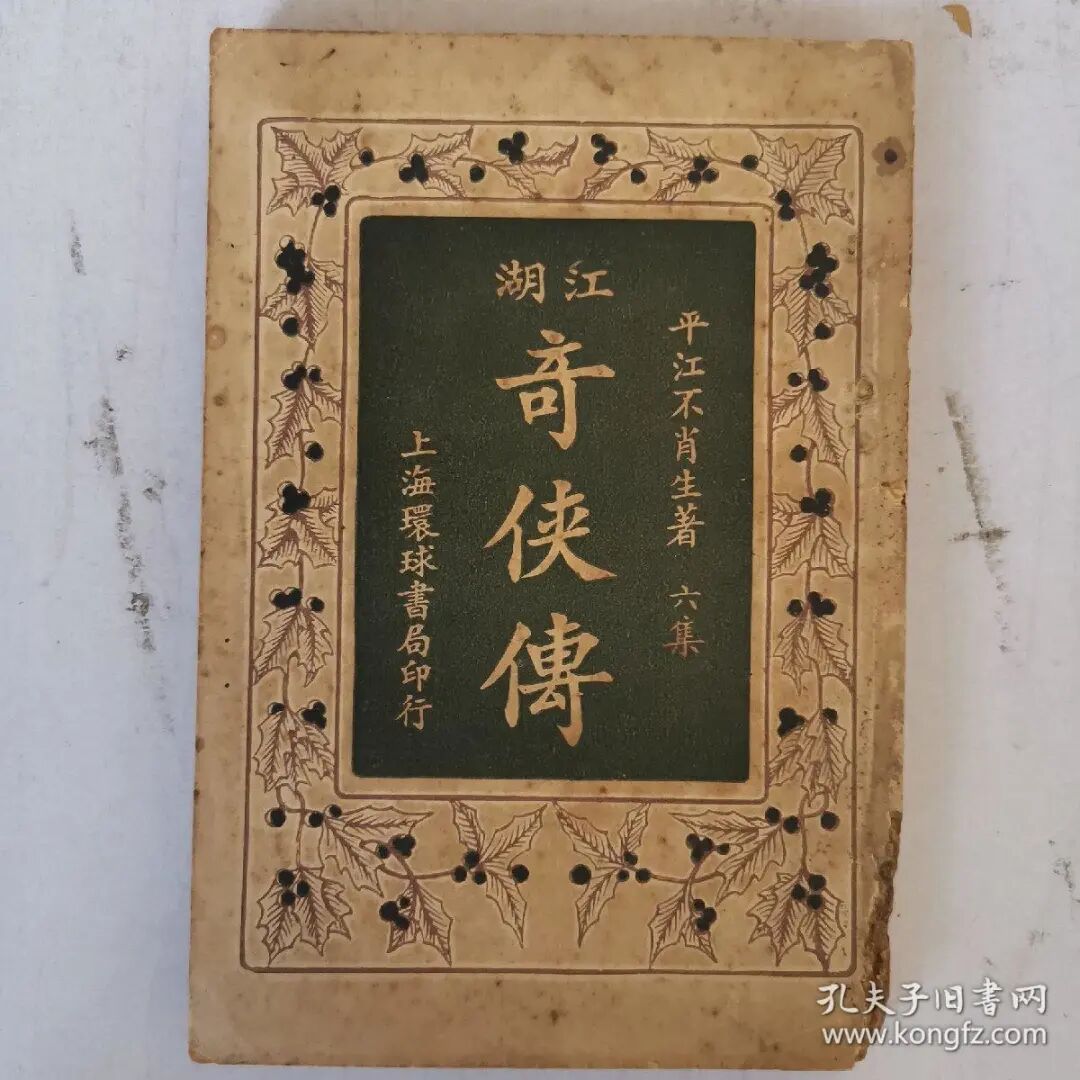 江湖
奇俠傳
平江不肖生著 六集
上海環球書局印行
孔夫子旧书网
www.kongfz.com